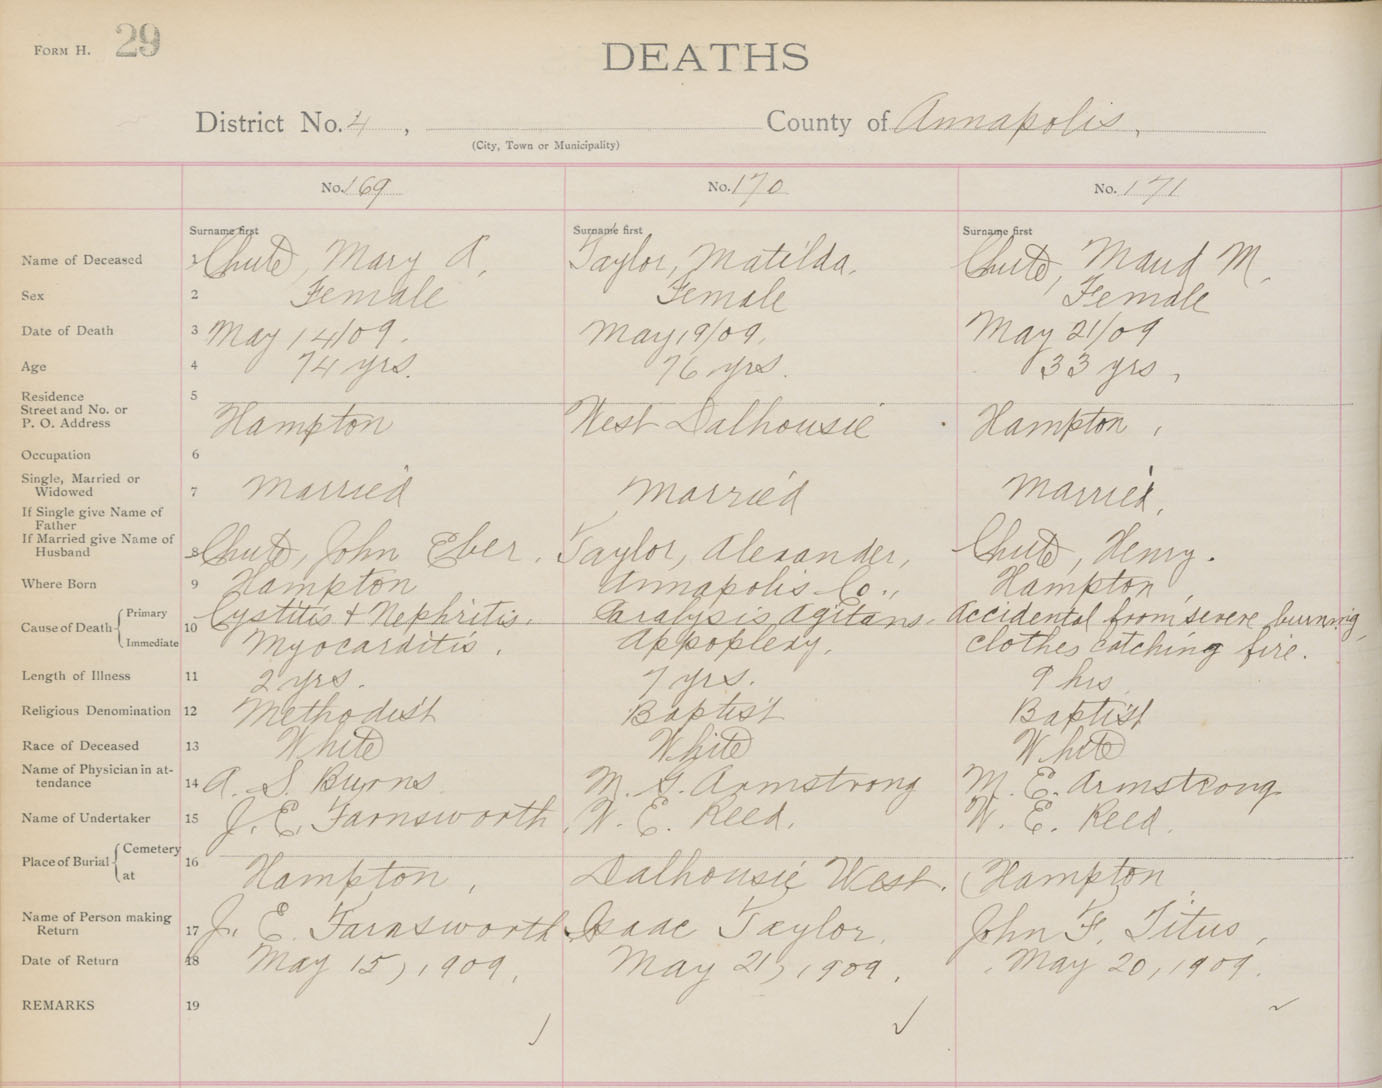 FORM H. 29
DEATHS
District No. 4 , County of Annapolis,
(City, Town or Municipality)
No. 169 No. 170 No. 171
Surname first Surname first Surname first
Name of Deceased 1 Chute, Mary A, Taylor, Matilda. Chute, Maud M.
Sex 2 Female Female Female
Date of Death 3 May 14/09. May 19/09. May 21/09
Age 4 74 yrs. 76 yrs. 33 yrs,
Residence 5
Street and No. or
P. O. Address Hampton West Dalhousie Hampton,
Occupation 6
Single, Married or
Widowed 7 Married Married Married,
If Single give Name of
Father
If Married give Name of
Husband 8 Chute, John Eber. Taylor, Alexander, Chute, Henry.
Where Born 9 Hampton Annapolis Co., Hampton,
Cause of Death Primary 10 Cystitis & Nephritis. Paralysis Agitans. Accidental from severe burning,
Immediate Myocarditis. Appoplexy. clothes catching fire.
Length of Illness 11 2 yrs. 7 yrs. 9 hrs
Religious Denomination 12 Methodist Baptist Baptist
Race of Deceased 13 White White White
Name of Physician in at-
tendance 14 A. S. Burns M. G. Armstrong M. E. Armstrong
Name of Undertaker 15 J. E. Farnsworth, W. E. Reed. W. E. Reed.
Place of Burial Cemetery 16
at Hampton, Dalhousie West. Hampton,
Name of Person making
Return 17 J. E. Farnsworth Isaac Taylor. John F. Titus,
Date of Return 18 May 15, 1909, May 21, 1909. May 20, 1909.
REMARKS 19